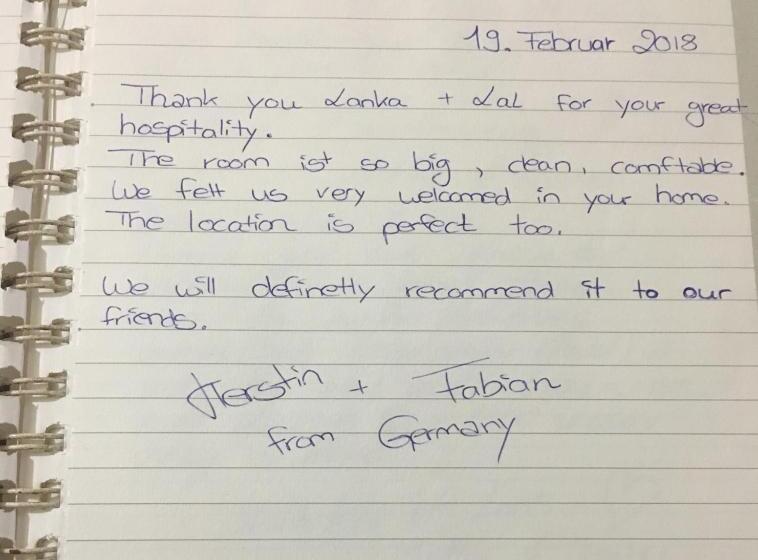 19. Februar 2018
Thank you Lanka + Lal for your great
hospitality.
The room ist so big, clean, comftable.
We felt us very welcomed in your home.
The location is perfect too.
We will definetly recommend it to our
friends.
Kerstin + Fabian
from Germany